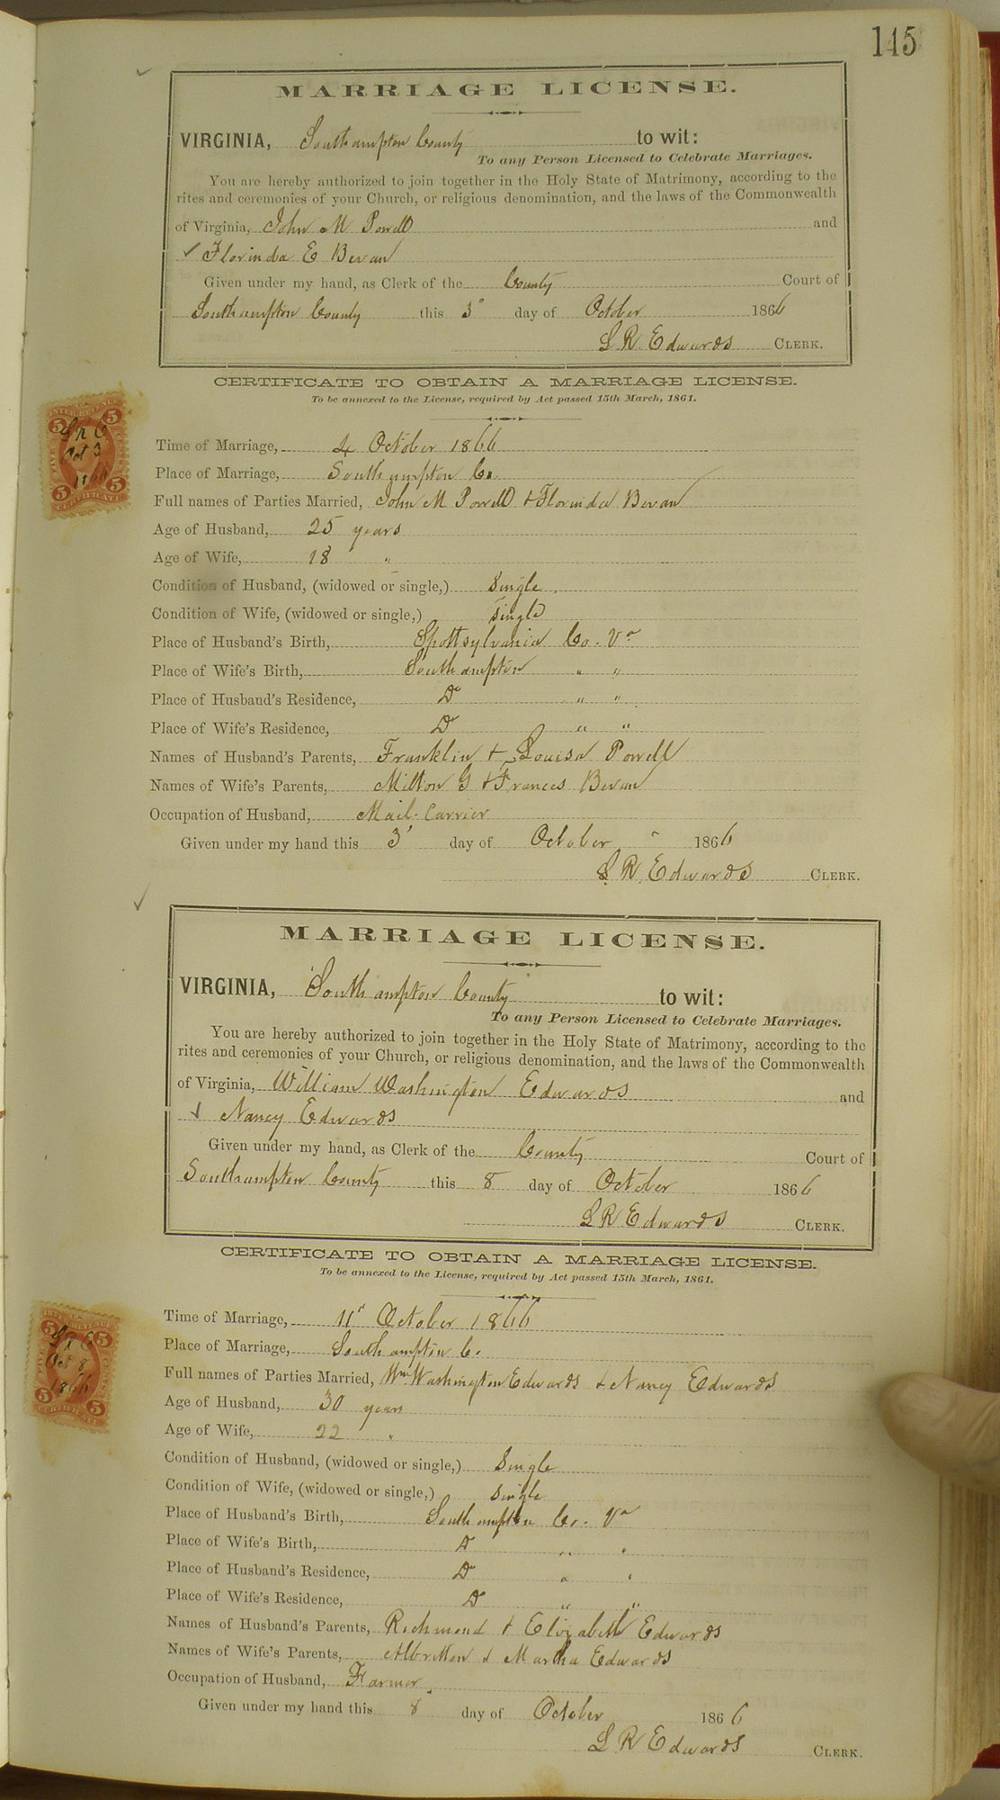 145
MARRIAGE LICENSE.
VIRGINIA, Southampton County to wit:
To any Person Licensed to Celebrate Marriages.
You are hereby authorized to join together in the Holy State of Matrimony, according to the
rites and ceremonies of your Church, or religious denomination, and the laws of the Commonwealth
of Virginia, John M Powell and
Florinda E Bevan
Given under my hand, as Clerk of the County Court of
Southampton County this 3d day of October 1866
L R Edwards CLERK.
CERTIFICATE TO OBTAIN A MARRIAGE LICENSE.
To be annexed to the License, required by Act passed 15th March, 1861.
Time of Marriage, 4 October 1866
Place of Marriage, Southampton Co.
Full names of Parties Married, John M Powell & Florinda Bevan
Age of Husband, 25 years
Age of Wife, 18 "
Condition of Husband, (widowed or single,) Single
Condition of Wife, (widowed or single,) Single
Place of Husband's Birth, Spottsylvania Co. Va
Place of Wife's Birth, Southampton " "
Place of Husband's Residence, Do " "
Place of Wife's Residence, Do " "
Names of Husband's Parents, Franklin & Louisa Powell
Names of Wife's Parents, Milton G & Frances Bevan
Occupation of Husband, Mail-Carrier
Given under my hand this 3d day of October 1866
L R Edwards CLERK.
5 5
L R E
Oct 3
1866
5 5
CERTIFICATE
MARRIAGE LICENSE.
VIRGINIA, Southampton County to wit:
To any Person Licensed to Celebrate Marriages.
You are hereby authorized to join together in the Holy State of Matrimony, according to the
rites and ceremonies of your Church, or religious denomination, and the laws of the Commonwealth
of Virginia, William Washington Edwards and
Nancy Edwards
Given under my hand, as Clerk of the County Court of
Southampton County this 8 day of October 1866
L R Edwards CLERK.
CERTIFICATE TO OBTAIN A MARRIAGE LICENSE.
To be annexed to the License, required by Act passed 15th March, 1861.
Time of Marriage, 11th October 1866
Place of Marriage, Southampton Co.
Full names of Parties Married, Wm Washington Edwards & Nancy Edwards
Age of Husband, 30 years
Age of Wife, 22 "
Condition of Husband, (widowed or single,) Single
Condition of Wife, (widowed or single,) Single
Place of Husband's Birth, Southampton Co. Va
Place of Wife's Birth, Do " "
Place of Husband's Residence, Do " "
Place of Wife's Residence, Do " "
Names of Husband's Parents, Richmond & Elizabeth Edwards
Names of Wife's Parents, Albritton & Martha Edwards
Occupation of Husband, Farmer.
Given under my hand this 8 day of October 1866
L R Edwards CLERK.
5 5
L R E
Oct 8
1866
5 5
CERTIFICATE